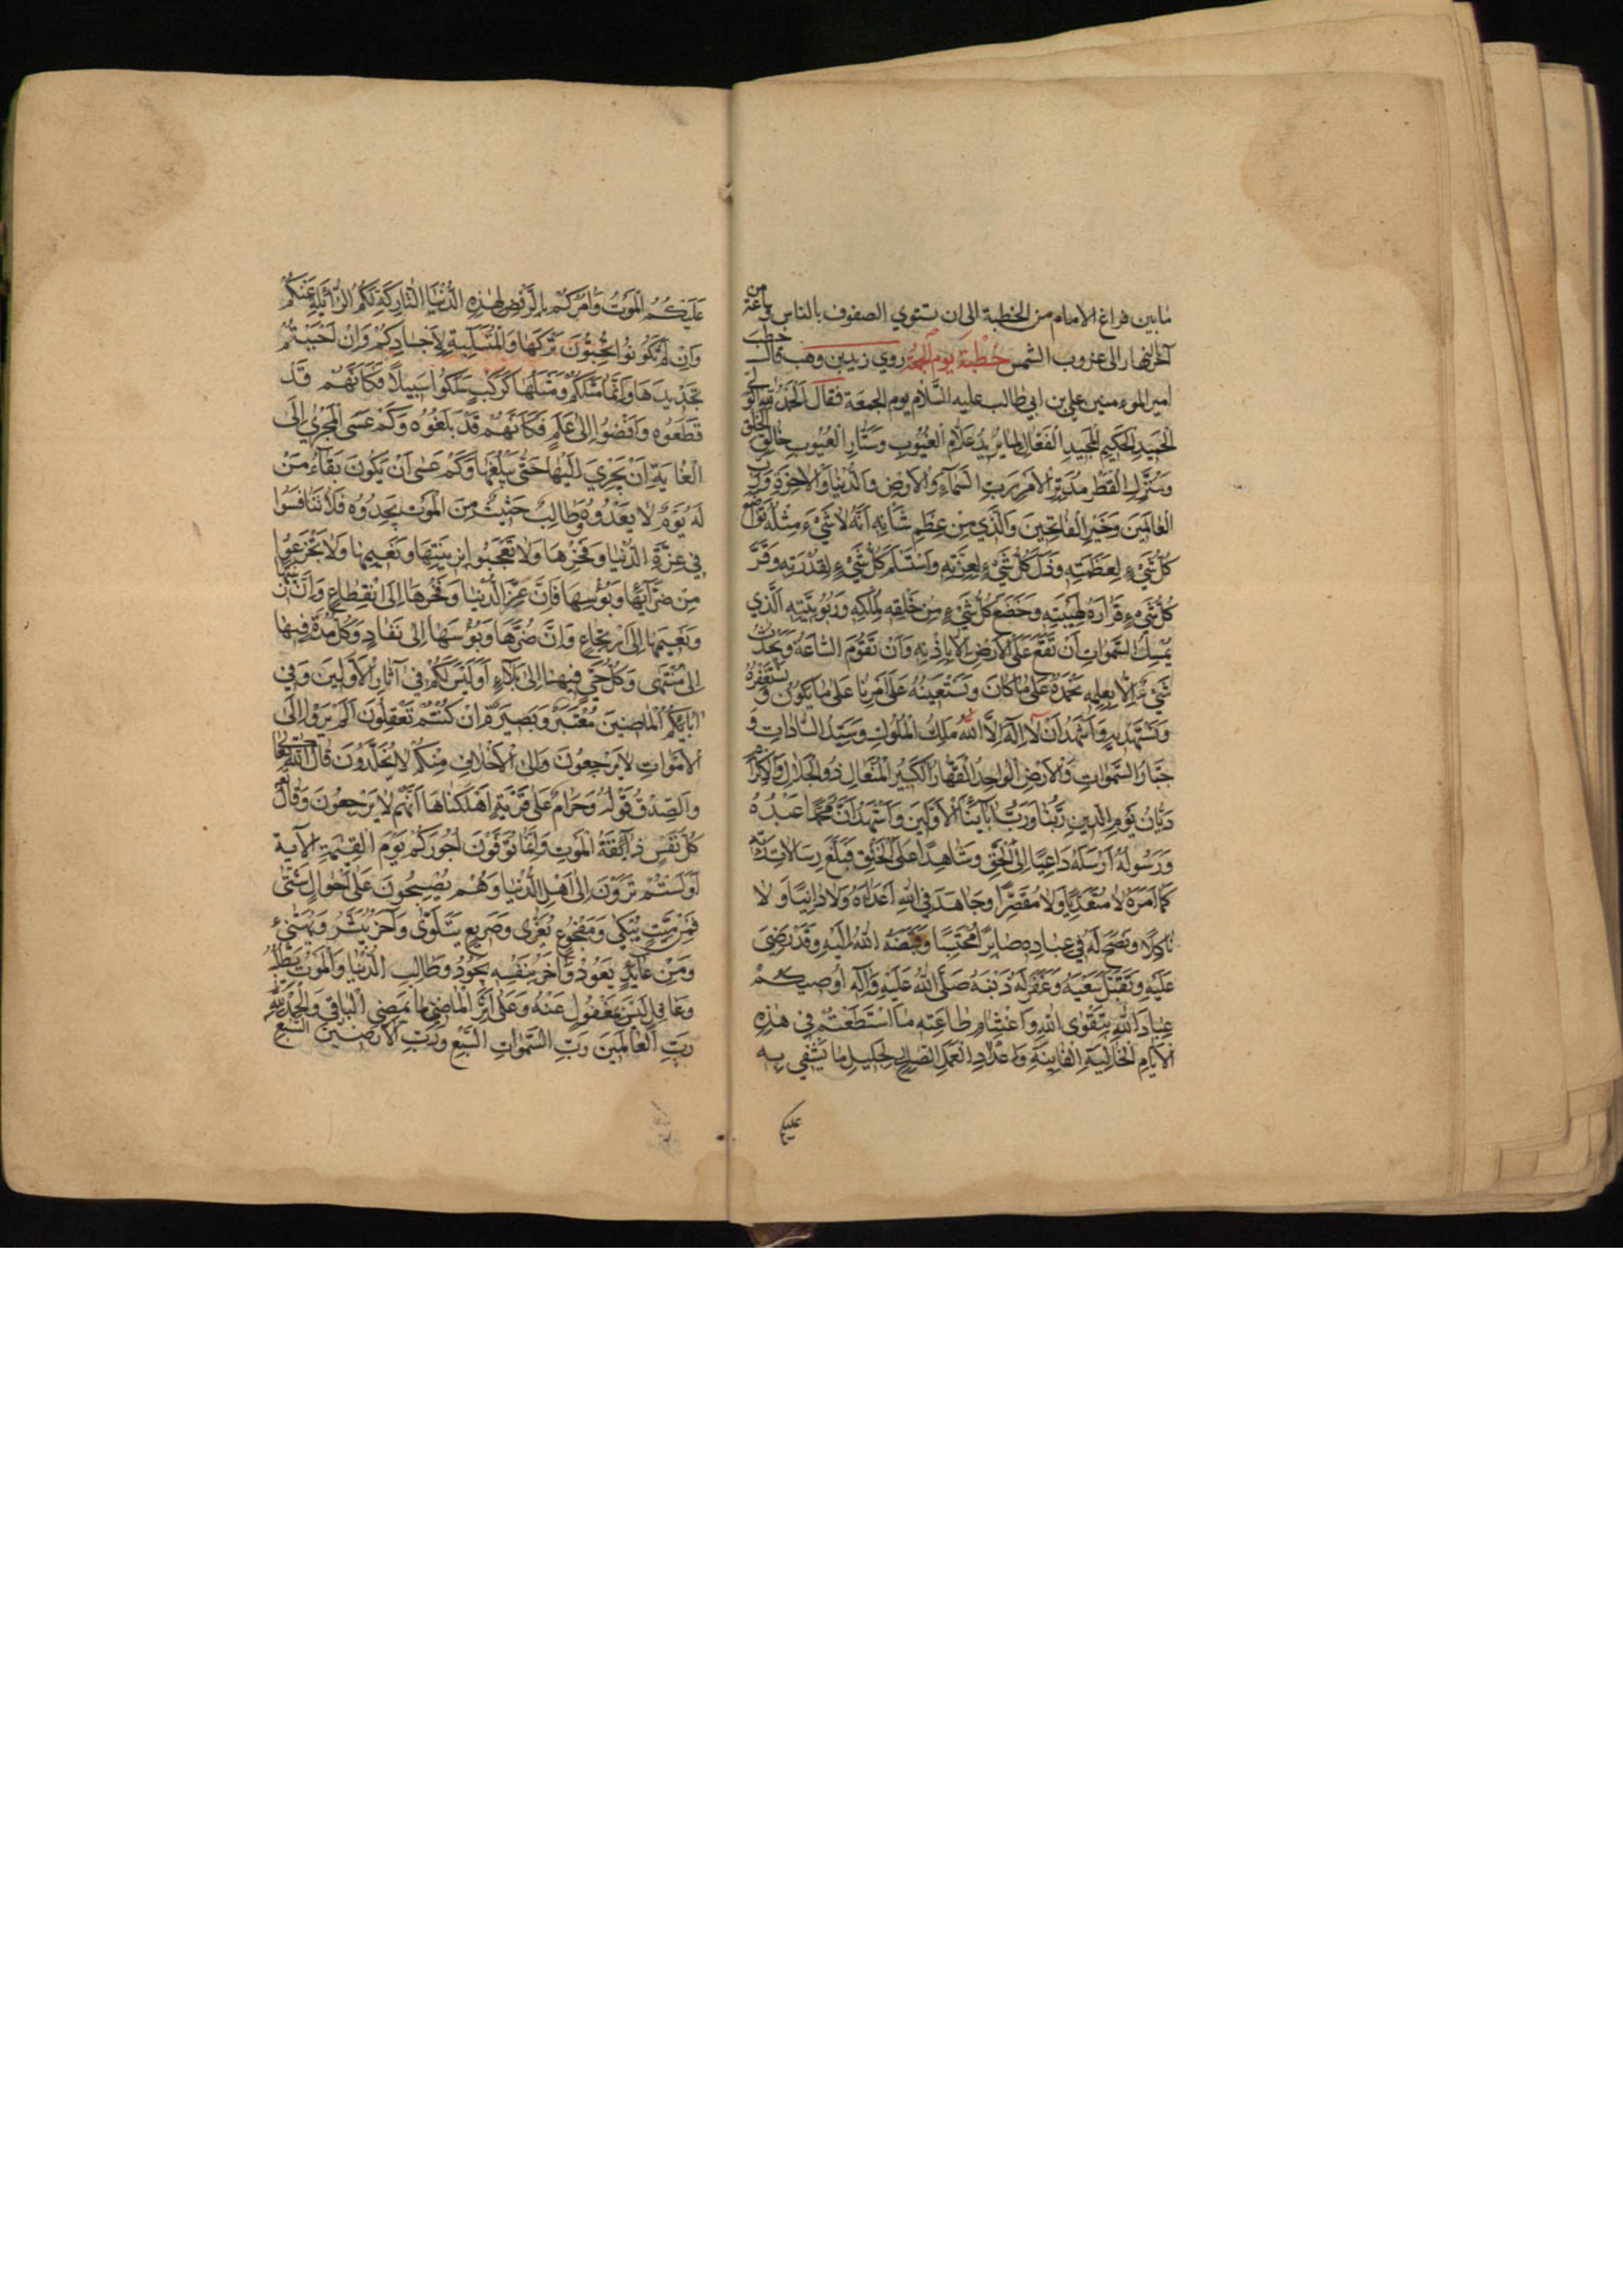 ما بين فراغ الامام من الخطبة الى ان تستوي الصفوف بالناس وساعة من
آخر النهار الى غروب الشمس خُطْبَة يوم الجمعة روي زيد بن وهب قال خطب
امير المؤمنين علي بن ابي طالب عليه السَّلام يوم الجمعة فقال الحَمْدُ للهِ الوَلِيِّ
الحَمِيدِ الحَكِيمِ المَجِيدِ الفَعّالِ لِما يُرِيدُ عَلّامِ الغُيُوبِ وَسَتّارِ العُيُوبِ خالِقِ الخَلْقِ
وَمُنَزِّلِ القَطْرِ مُدَبِّرِ الاَمْرِ رَبِّ السَّمآءِ وَالأَرْضِ وَالدُّنْيا وَالآخِرَةِ وَرَبِّ
العالَمِينَ وَخَيْرِ الفاتِحِينَ وَالَّذِي مِنْ عِظَمِ شَأنِهِ اَنَّهُ لا شَيْءَ مِثْلُهُ تَواضَعَ
كُلُّ شَيْءٍ لِعَظَمَتِهِ وَذَلَّ كُلُّ شَيْءٍ لِعِزَّتِهِ وَاسْتَسْلَمَ كُلُّ شَيْءٍ لِقُدْرَتِهِ وَقَرَّ
كُلُّ شَيْءٍ قَرارَهُ لِهَيْبَتِهِ وَخَضَعَ كُلُّ شَيْءٍ مِنْ خَلْقِهِ لِمُلْكِهِ وَرُبُوبِيَّتِهِ الَّذِي
يُمْسِكُ السَّمواتِ أَنْ تَقَعَ عَلَى الاَرْضِ اِلّا بِاِذْنِهِ وَاَنْ تَقُومَ السّاعَةُ وَيَحْدُثَ
شَيْءٌ اِلّا بِعِلْمِهِ نَحْمَدُهُ عَلى ما كانَ وَنَسْتَعِينُهُ عَلى اَمْرِنا عَلى ما يَكُونُ وَنَسْتَغْفِرُهُ
وَنَسْتَهْدِيهِ وَأَشْهَدُ اَنْ لا اِلهَ اِلَّا اللهُ مَلِكُ المُلُوكِ وَسَيِّدُ السّاداتِ وَ
جَبّارُ السَّمواتِ وَالاَرْضِ الواحِدُ القَهّارُ الكَبِيرُ المُتَعالِ ذُو الجَلالِ وَالاِكْرامِ
دَيّانُ يَوْمِ الدِّينِ رَبُّنا وَرَبُّ آبائِنا الاَوَّلِينَ وَاَشْهَدُ اَنَّ مُحَمَّدًا عَبْدُهُ
وَرَسُولُهُ اَرْسَلَهُ داعِيًا اِلَى الحَقِّ وَشاهِدًا عَلَى الخَلْقِ فَبَلَّغَ رِسالاتِ رَبِّهِ
كَما اَمَرَهُ لا مُتَعَدِّيًا وَلا مُقَصِّرًا وَجاهَدَ فِي اللهِ اَعْداءَهُ وَلا وانِيًا وَلا
ناكِلًا وَنَصَحَ لَهُ فِي عِبادِهِ صابِرًا مُحْتَسِبًا وَقَبَضَهُ اللهُ اِلَيْهِ وَقَدْ رَضِيَ
عَلَيْهِ وَتَقَبَّلَ سَعْيَهُ وَغَفَرَ لَهُ ذَنْبَهُ صَلَّى اللهُ عَلَيْهِ وَآلِهِ اُوصِيكُمْ
عِبادَ اللهِ بِتَقْوَى اللهِ وَاغْتِنامِ طاعَتِهِ ما اسْتَطَعْتُمْ فِي هذِهِ
الاَيّامِ الخالِيَةِ الفانِيَةِ وَاِعْدادِ العَمَلِ الصّالِحِ لِجَلِيلِ ما يُشْفِي بِهِ
عليكم
عَلَيْكُمُ المَوْتُ وَآمُرُكُمْ بِالرَّفْضِ لِهذِهِ الدُّنْيَا التّارِكَةِ لَكُمُ الزّائِلَةِ عَنْكُمْ
وَاِنْ لَمْ تَكُونُوا تُحِبُّونَ تَرْكَها وَالمُبْلِيَةِ لِاَجْسادِكُمْ وَاِنْ اَحْبَبْتُمْ
تَجْدِيدَها وَاِنَّما مَثَلُكُمْ وَمَثَلُها كَرَكْبٍ سَلَكُوا سَبِيلًا فَكَاَنَّهُمْ قَدْ
قَطَعُوهُ وَاَفْضَوْا اِلى عَلَمٍ فَكَاَنَّهُمْ قَدْ بَلَغُوهُ وَكَمْ عَسَى المُجْرِي اِلَى
الغايَةِ اَنْ يَجْرِيَ اِلَيْها حَتّى يَبْلُغَها وَكَمْ عَسى اَنْ يَكُونَ بَقاءُ مَنْ
لَهُ يَوْمٌ لا يَعْدُوهُ وَطالِبٌ حَثِيثٌ مِنَ المَوْتِ يَحْدُوهُ فَلا تَنافَسُوا
فِي عِزَّةِ الدُّنْيا وَفَخْرِها وَلا تَعْجَبُوا بِزِينَتِها وَنَعِيمِها وَلا تَجْزَعُوا
مِنْ ضَرّائِها وَبُؤْسِها فَاِنَّ عِزَّ الدُّنْيا وَفَخْرَها اِلَى انْقِطاعٍ وَاَنَّ زِينَتَها
وَنَعِيمَها اِلَى ارْتِجاعٍ وَاِنَّ ضُرَّها وَبُؤْسَها اِلى نَفادٍ وَكُلُّ مُدَّةٍ فِيها
اِلى مُنْتَهى وَكُلُّ حَيٍّ فِيها اِلى بَلاءٍ اَوَلَيْسَ لَكُمْ فِي آثارِ الاَوَّلِينَ وَفِي
آبائِكُمُ الماضِينَ مُعْتَبَرٌ وَبَصِيرَةٌ اِنْ كُنْتُمْ تَعْقِلُونَ اَلَمْ تَرَوْا اِلَى
الاَمْواتِ لا يَرْجِعُونَ وَاِلَى الاَخْلافِ مِنْكُمْ لا يَخْلُدُونَ قالَ اللهُ تَعالى
وَالصِّدْقُ قَوْلُهُ وَحَرامٌ عَلى قَرْيَةٍ اَهْلَكْناها اَنَّهُمْ لا يَرْجِعُونَ وَقالَ
كُلُّ نَفْسٍ ذائِقَةُ المَوْتِ وَاِنَّما تُوَفَّوْنَ اُجُورَكُمْ يَوْمَ القِيمَةِ الآية
اَوَلَسْتُمْ تَرَوْنَ اِلى اَهْلِ الدُّنْيا وَهُمْ يُصْبِحُونَ عَلى اَحْوالٍ شَتّى
فَمِنْ مَيِّتٍ يُبْكى وَمَفْجُوعٍ يُعَزّى وَصَرِيعٍ يَتَلَوّى وَآخَرُ يُبَشَّرُ وَيُهَنَّئُ
وَمِنْ عائِدٍ يَعُودُ وَآخَرُ بِنَفْسِهِ يَجُودُ وَطالِبِ الدُّنْيا وَالمَوْتُ يَطْلُبُهُ
وَغافِلٍ لَيْسَ بِمَغْفُولٍ عَنْهُ وَعَلى اَثَرِ الماضِي ما يَمْضِي الباقِي وَالحَمْدُ للهِ
رَبِّ العالَمِينَ رَبِّ السَّمواتِ السَّبْعِ وَرَبِّ الاَرَضِينَ السَّبْعِ